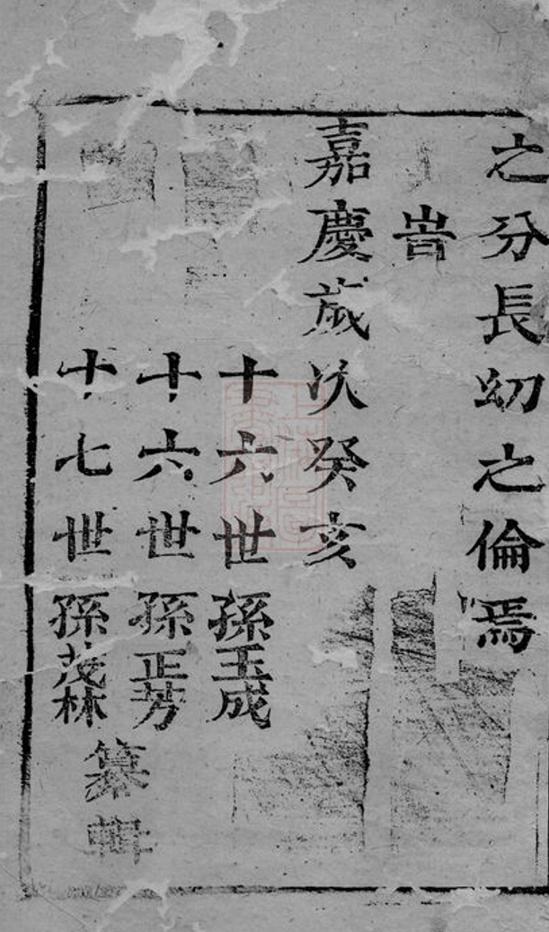 之分長㓜之倫焉
旹
嘉慶歲次癸亥
十六世孫玉成
十六世孫正芳
十七世孫茂林
纂輯